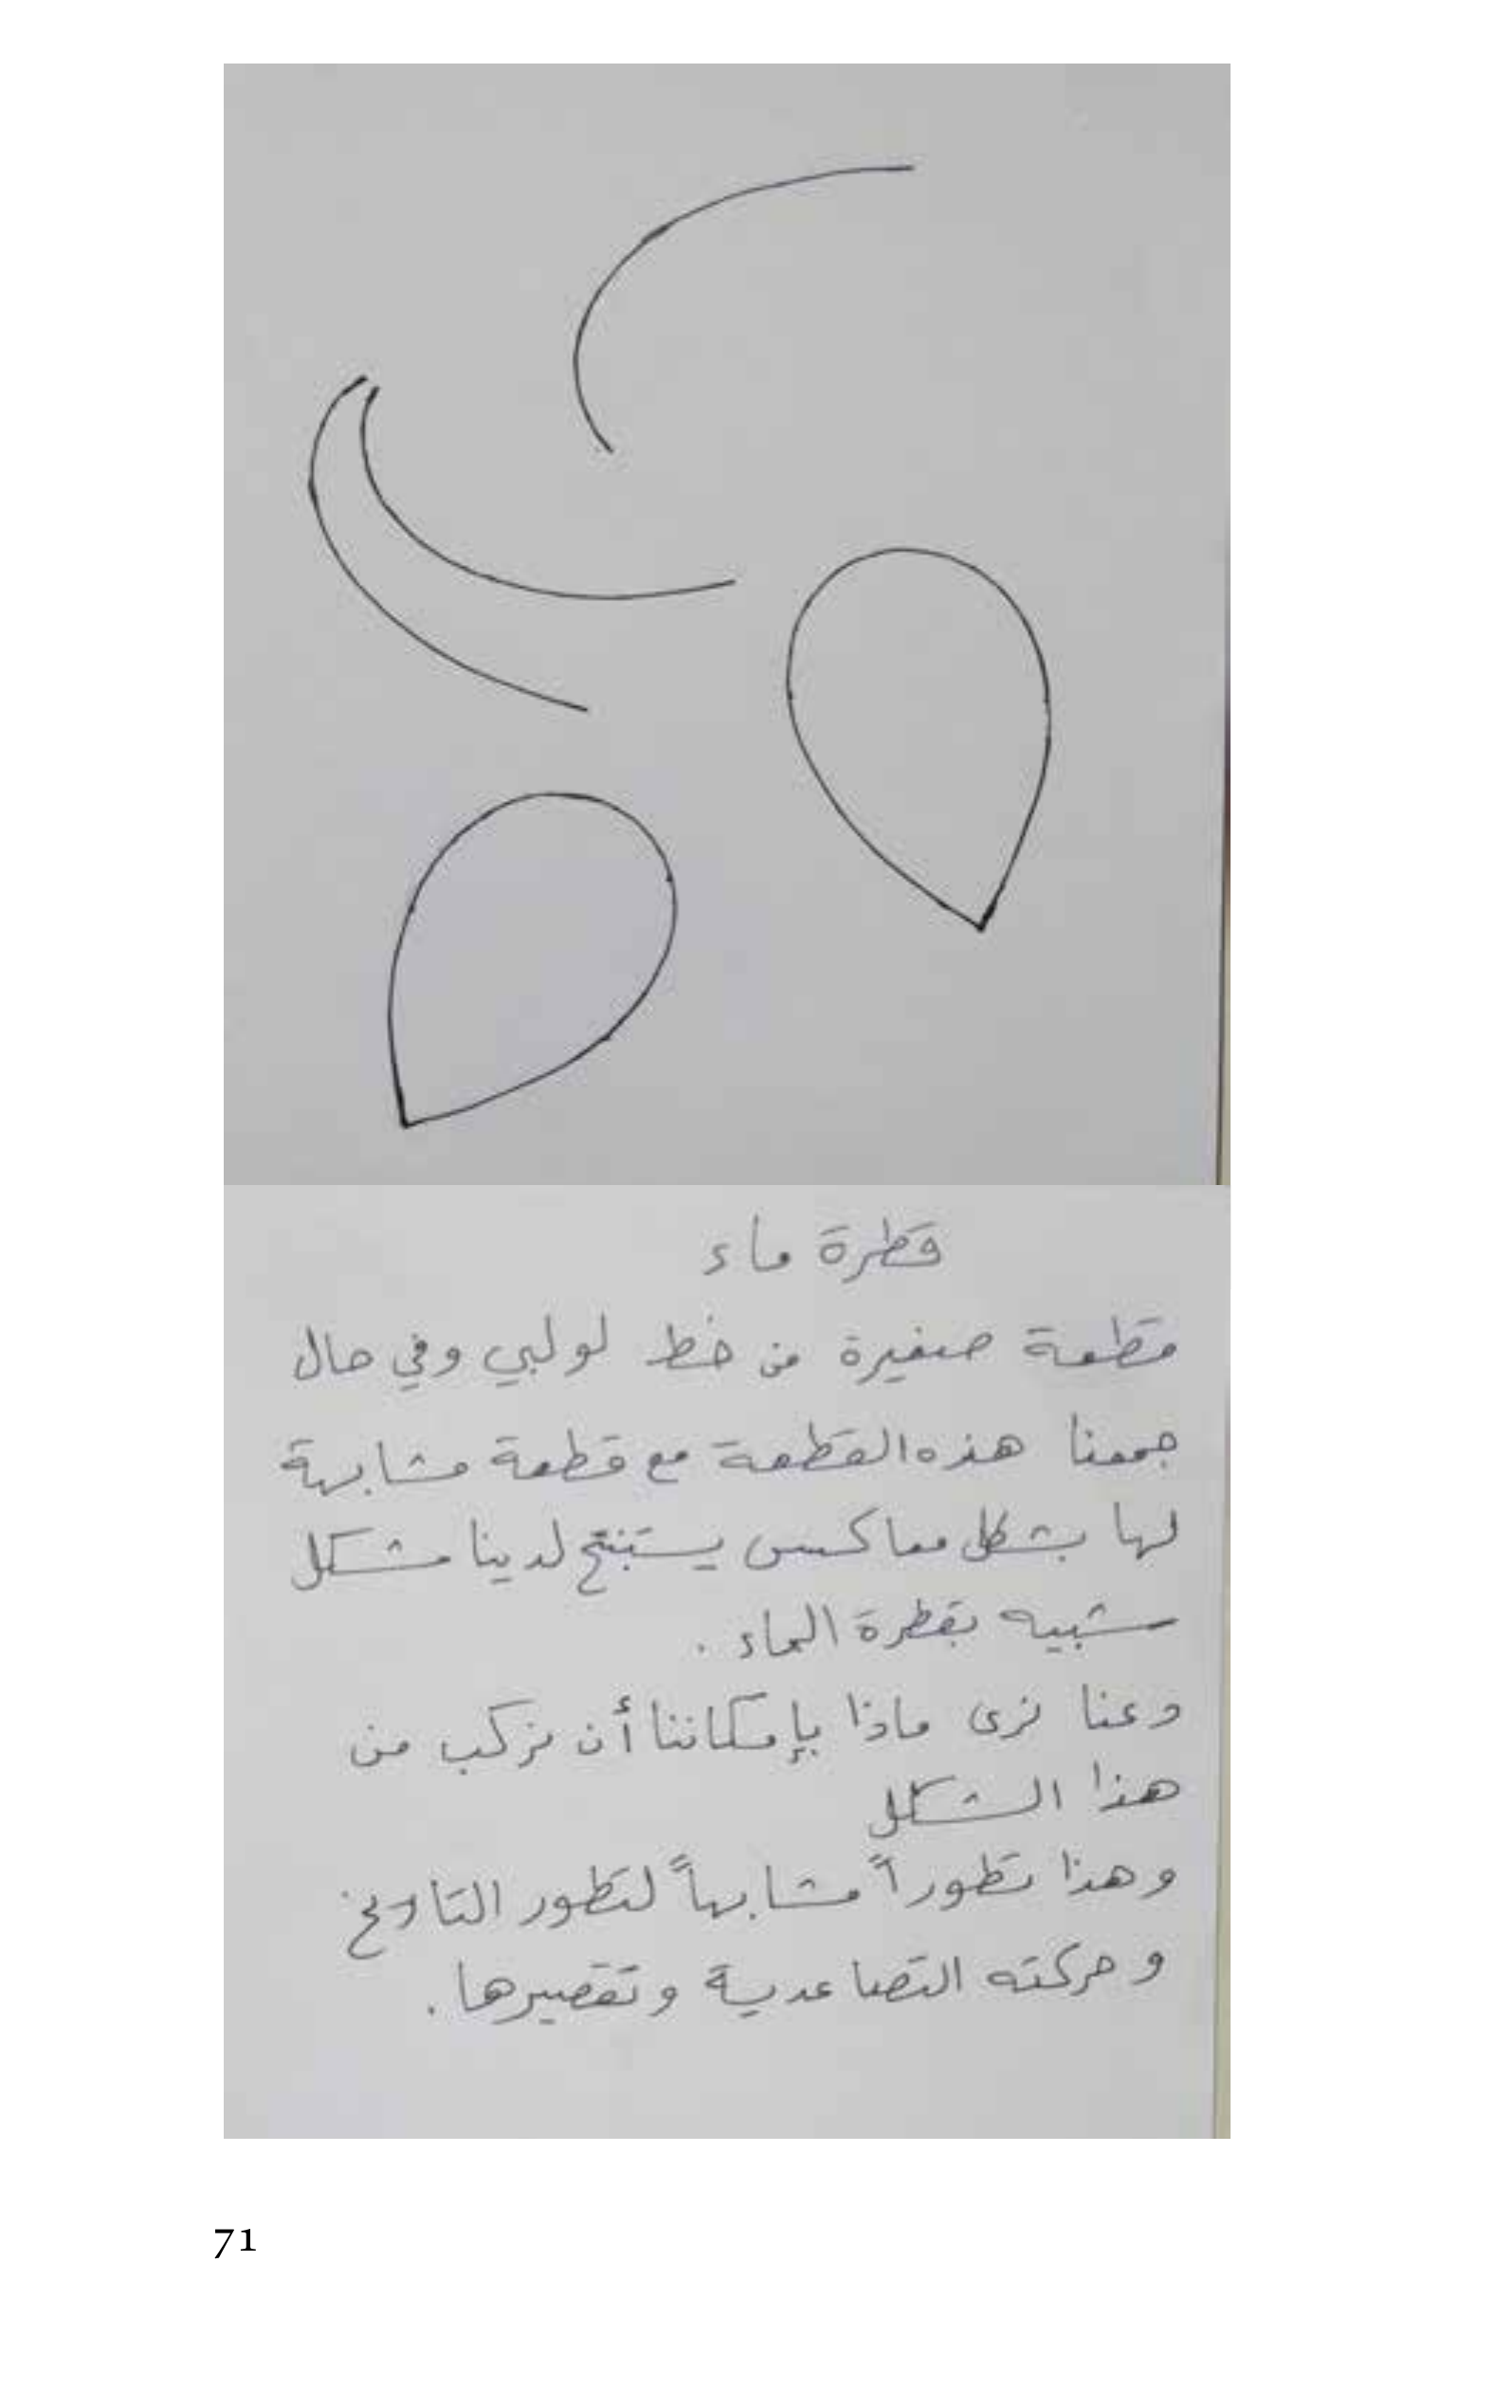 قطرة ماء
قطعة صغيرة من خط لولبي وفي حال
جمعنا هذه القطعة مع قطعة مشابهة
لها بشكل معاكس يستنتج لدينا مشكل
شبيه بقطرة الماء .
وعنا نرى ماذا بإمكاننا أن نركب من
هذا الشكل
وهذا تطوراً مشابهاً لتطور التاريخ
وحركته التصاعدية وتقصيرها .
71